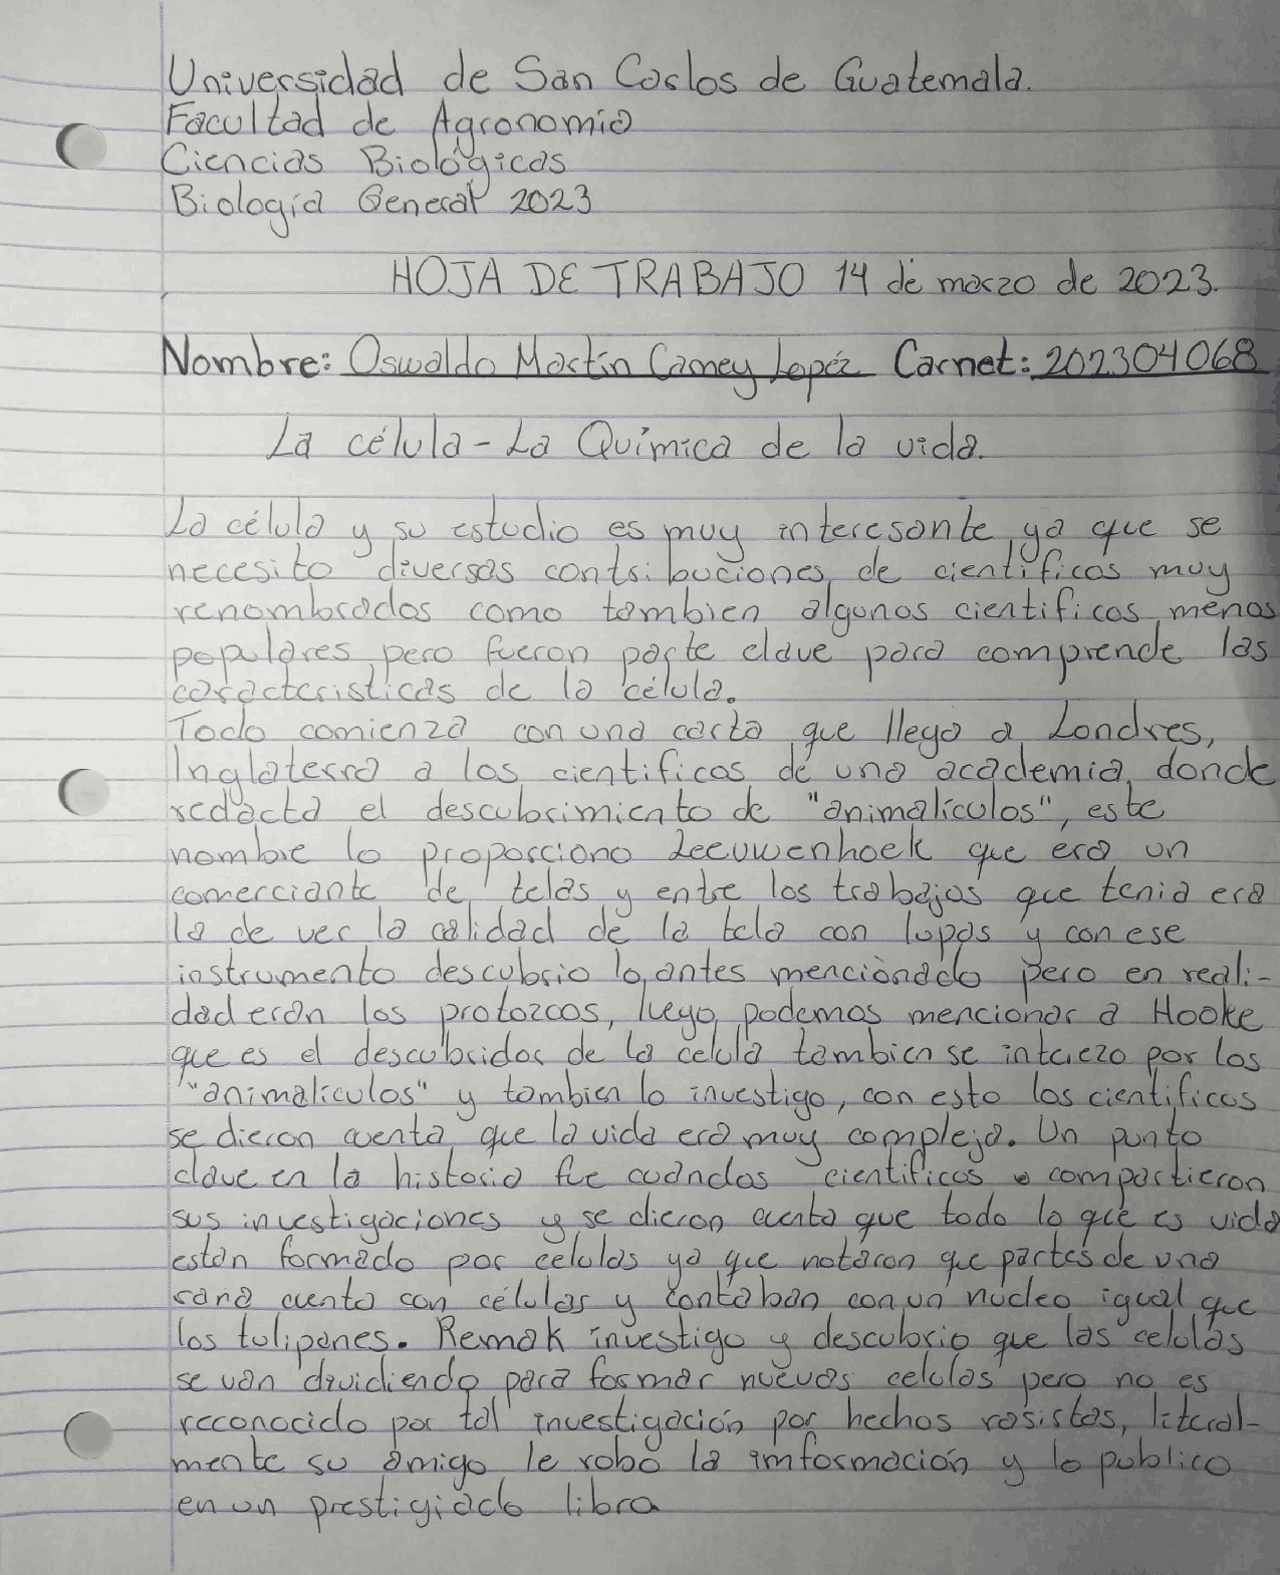 Universidad de San Carlos de Guatemala.
Facultad de Agronomia
Ciencias Biológicas
Biología General 2023
HOJA DE TRABAJO 14 de marzo de 2023.
Nombre: Oswaldo Martín Camey Lopéz Carnet: 202304068
La célula - La Química de la vida.
La célula y su estudio es muy interesante, ya que se
necesito diversas contribuciones, de científicos muy
renombrados como tambien algunos cientificos, menos
populares, pero fueron parte clave para comprende las
caracteristicas de la célula.
Todo comienza con una carta que llego a Londres,
Inglaterra a los cientificos de una academia, donde
redacta el descubrimiento de "animalículos", este
nombre lo proporciono Leeuwenhoek que era un
comerciante de telas y entre los trabajos que tenia era
la de ver la calidad de la tela con lupas y con ese
instrumento descubrio lo antes mencionado pero en reali-
dad eran los protozoos, luego podemos mencionar a Hooke
que es el descubridor de la celula tambien se interezo por los
"animalículos" y tambien lo investigo, con esto los científicos
se dieron cuenta que la vida era muy compleja. Un punto
clave en la historia fue cuandos científicos compartieron
sus investigaciones y se dieron cuenta que todo lo que es vida
están formado por celulas ya que notaron que partes de una
rana cuenta con células y contaban con un nucleo igual que
los tulipanes. Remak investigo y descubrio que las celulas
se van dividiendo para formar nuevas celulas pero no es
reconocido por tal investigación por hechos rasistas, literal-
mente su amigo le robo la imformación y lo publico
en un prestigiado libro